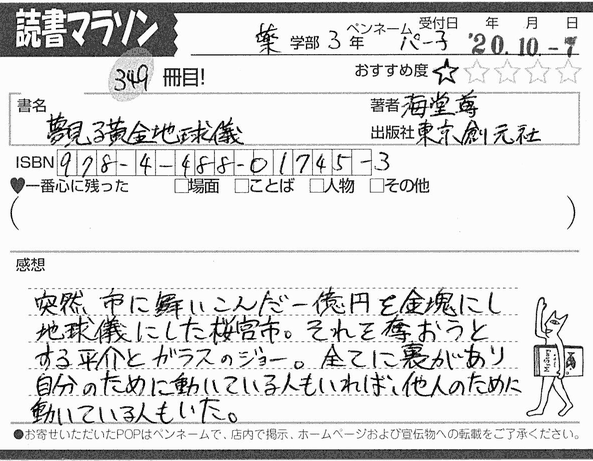 読書マラソン
薬 学部 3 年 ペンネーム パー子 受付日 年 月 日
'20.10.-7
349 冊目! おすすめ度 ☆☆☆☆☆
書名 著者 海堂尊
夢見る黄金地球儀 出版社 東京創元社
ISBN 978-4-488-01745-3
♥一番心に残った □場面 □ことば □人物 □その他
( )
感想
突然、市に舞いこんだ一億円を金塊にし
地球儀にした桜宮市。それを奪おうと
する平介とガラスのジョー。全てに裏があり
自分のために動いている人もいれば、他人のために
動いている人もいた。
●お寄せいただいたPOPはペンネームで、店内で掲示、ホームページおよび宣伝物への転載をご了承ください。